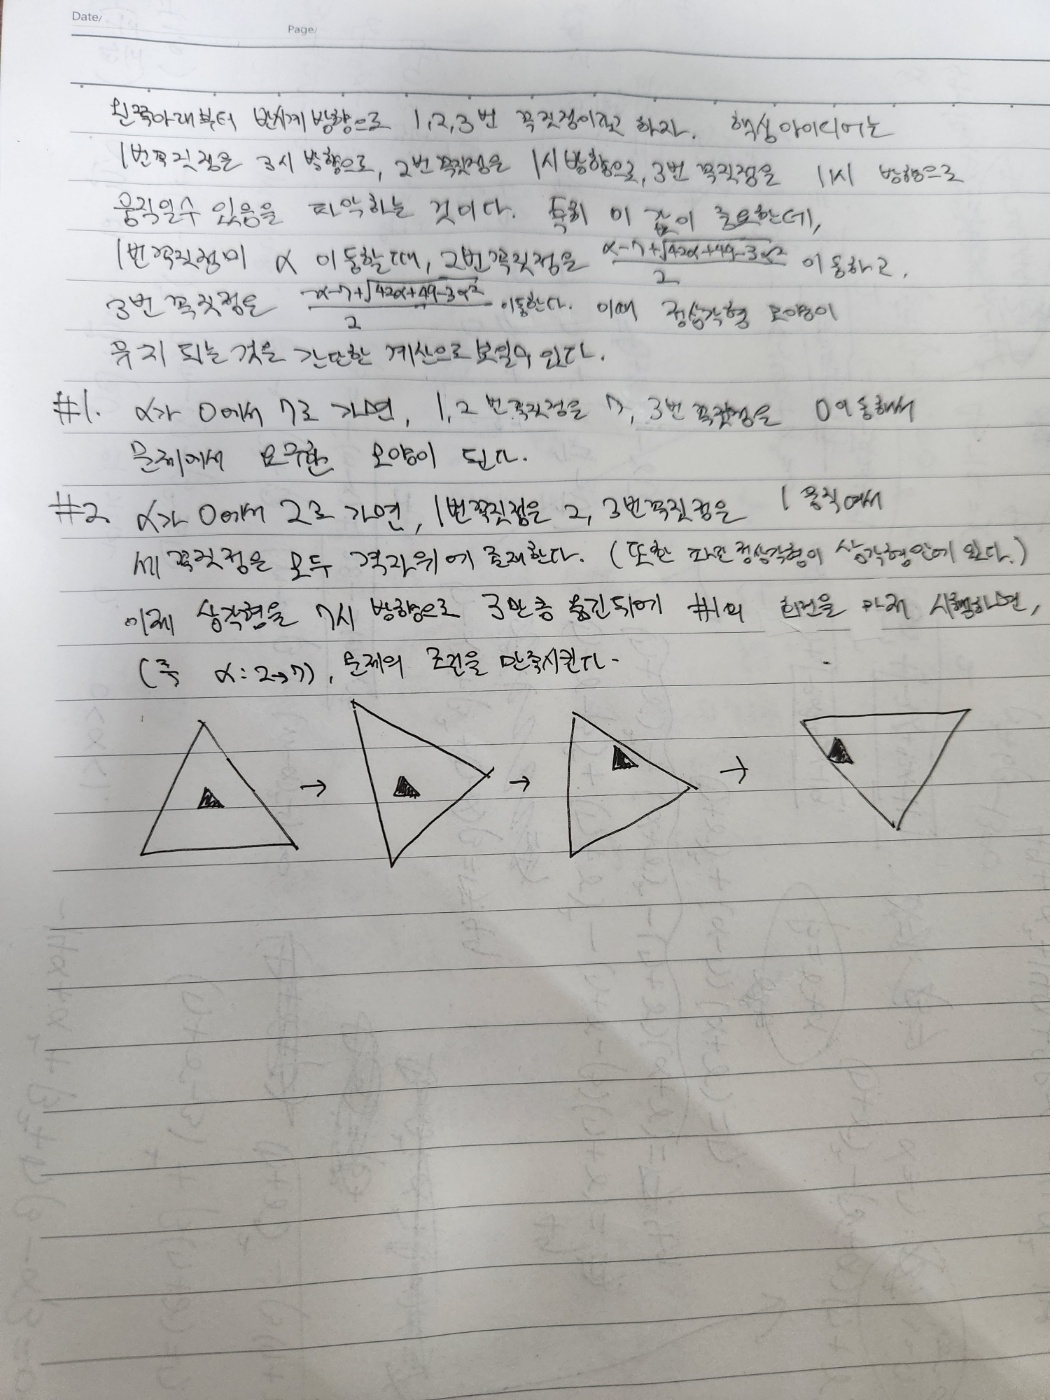 Date/
Page/
왼쪽아래부터 반시계 방향으로 1,2,3번 꼭짓점이라고 하자. 핵심아이디어는
1번꼭짓점을 3시 방향으로, 2번꼭짓점을 1시방향으로, 3번 꼭짓점을 11시 방향으로
움직일수 있음을 파악하는 것이다. 특히 이 값이 중요한데,
1번꼭짓점이 α 이동할때, 2번꼭짓점은 (α-7+√(42α+49-3α²))/2 이동하고,
3번 꼭짓점은 (-α-7+√(42α+49-3α²))/2 이동한다. 이때 정삼각형 모양이
유지 되는 것은 간단한 계산으로 보일수 있다.
#1. α가 0에서 7로 가면, 1,2 번꼭짓점은 7, 3번 꼭짓점은 0이동해서
문제에서 요구한 모양이 된다.
#2. α가 0에서 2로 가면, 1번꼭짓점은 2, 3번꼭짓점은 1 움직여서
세 꼭짓점은 모두 격자위에 존재한다. (또한 파란정삼각형이 삼각형안에 있다.)
이제 삼각형을 7시 방향으로 3만큼 옮긴뒤에 #1의 회전을 마저 시행하면,
(즉 α: 2→7), 문제의 조건을 만족시킨다.